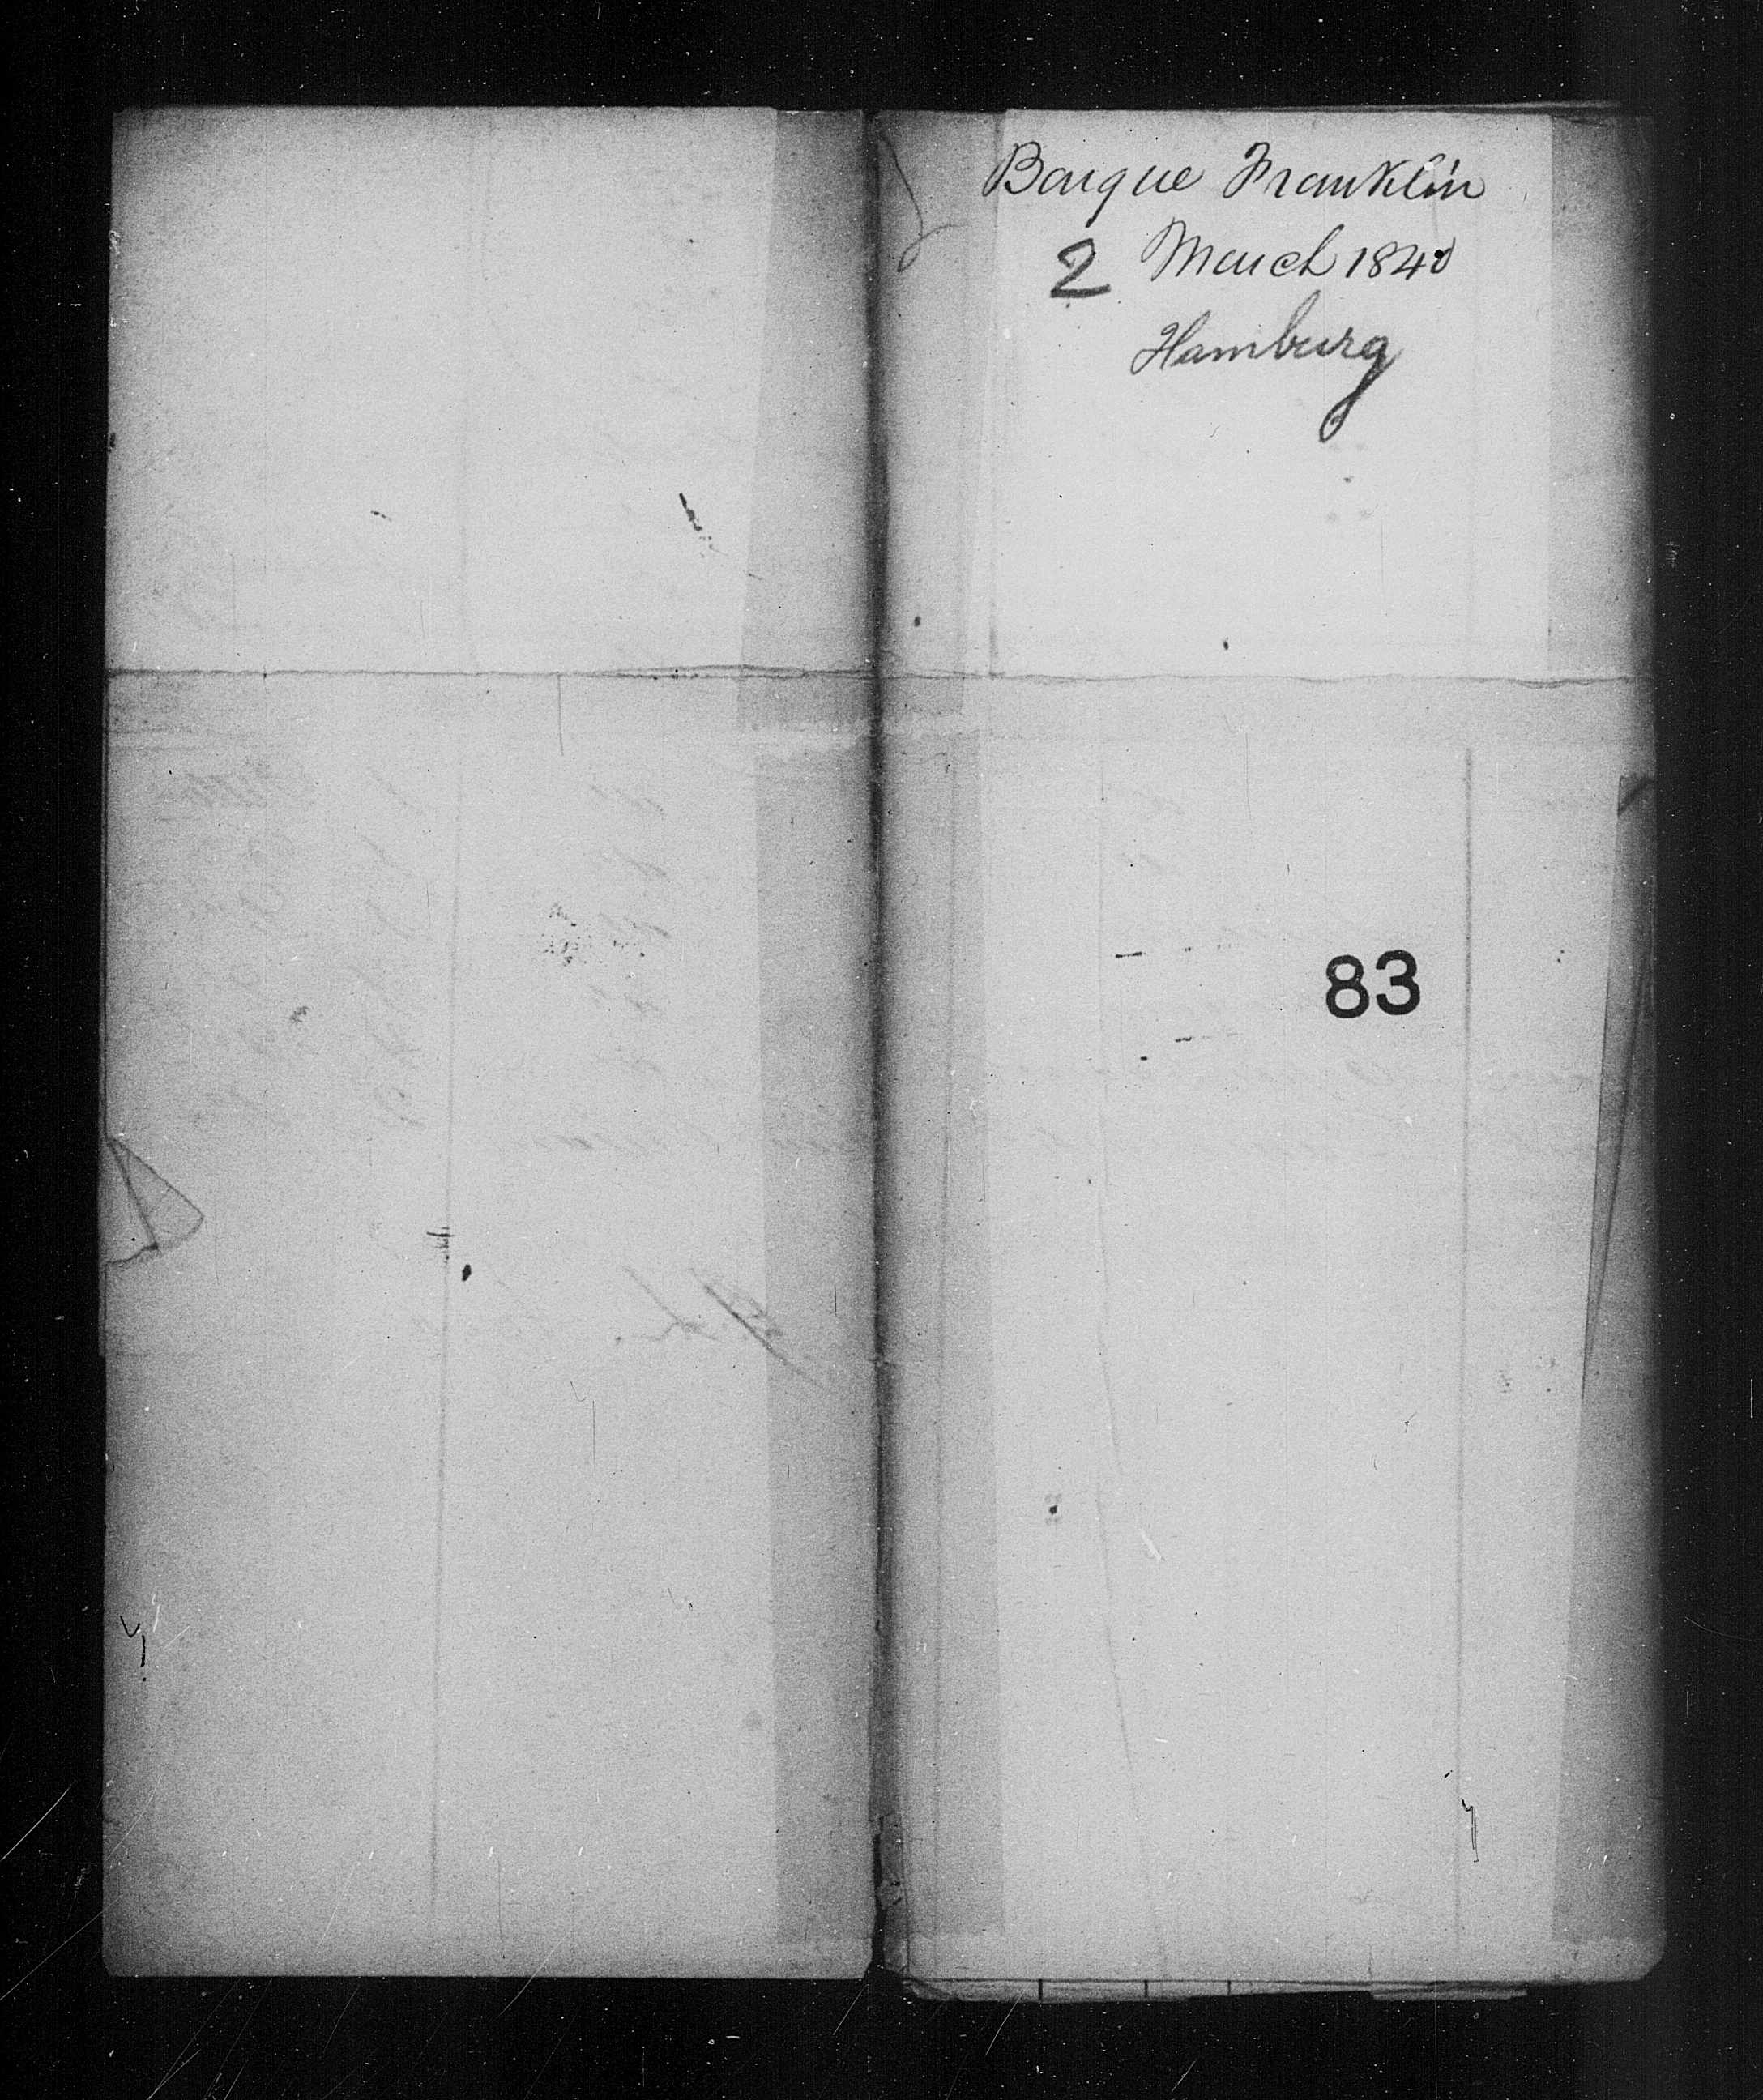 Barque Franklin
2 March 1840
Hamburg
83